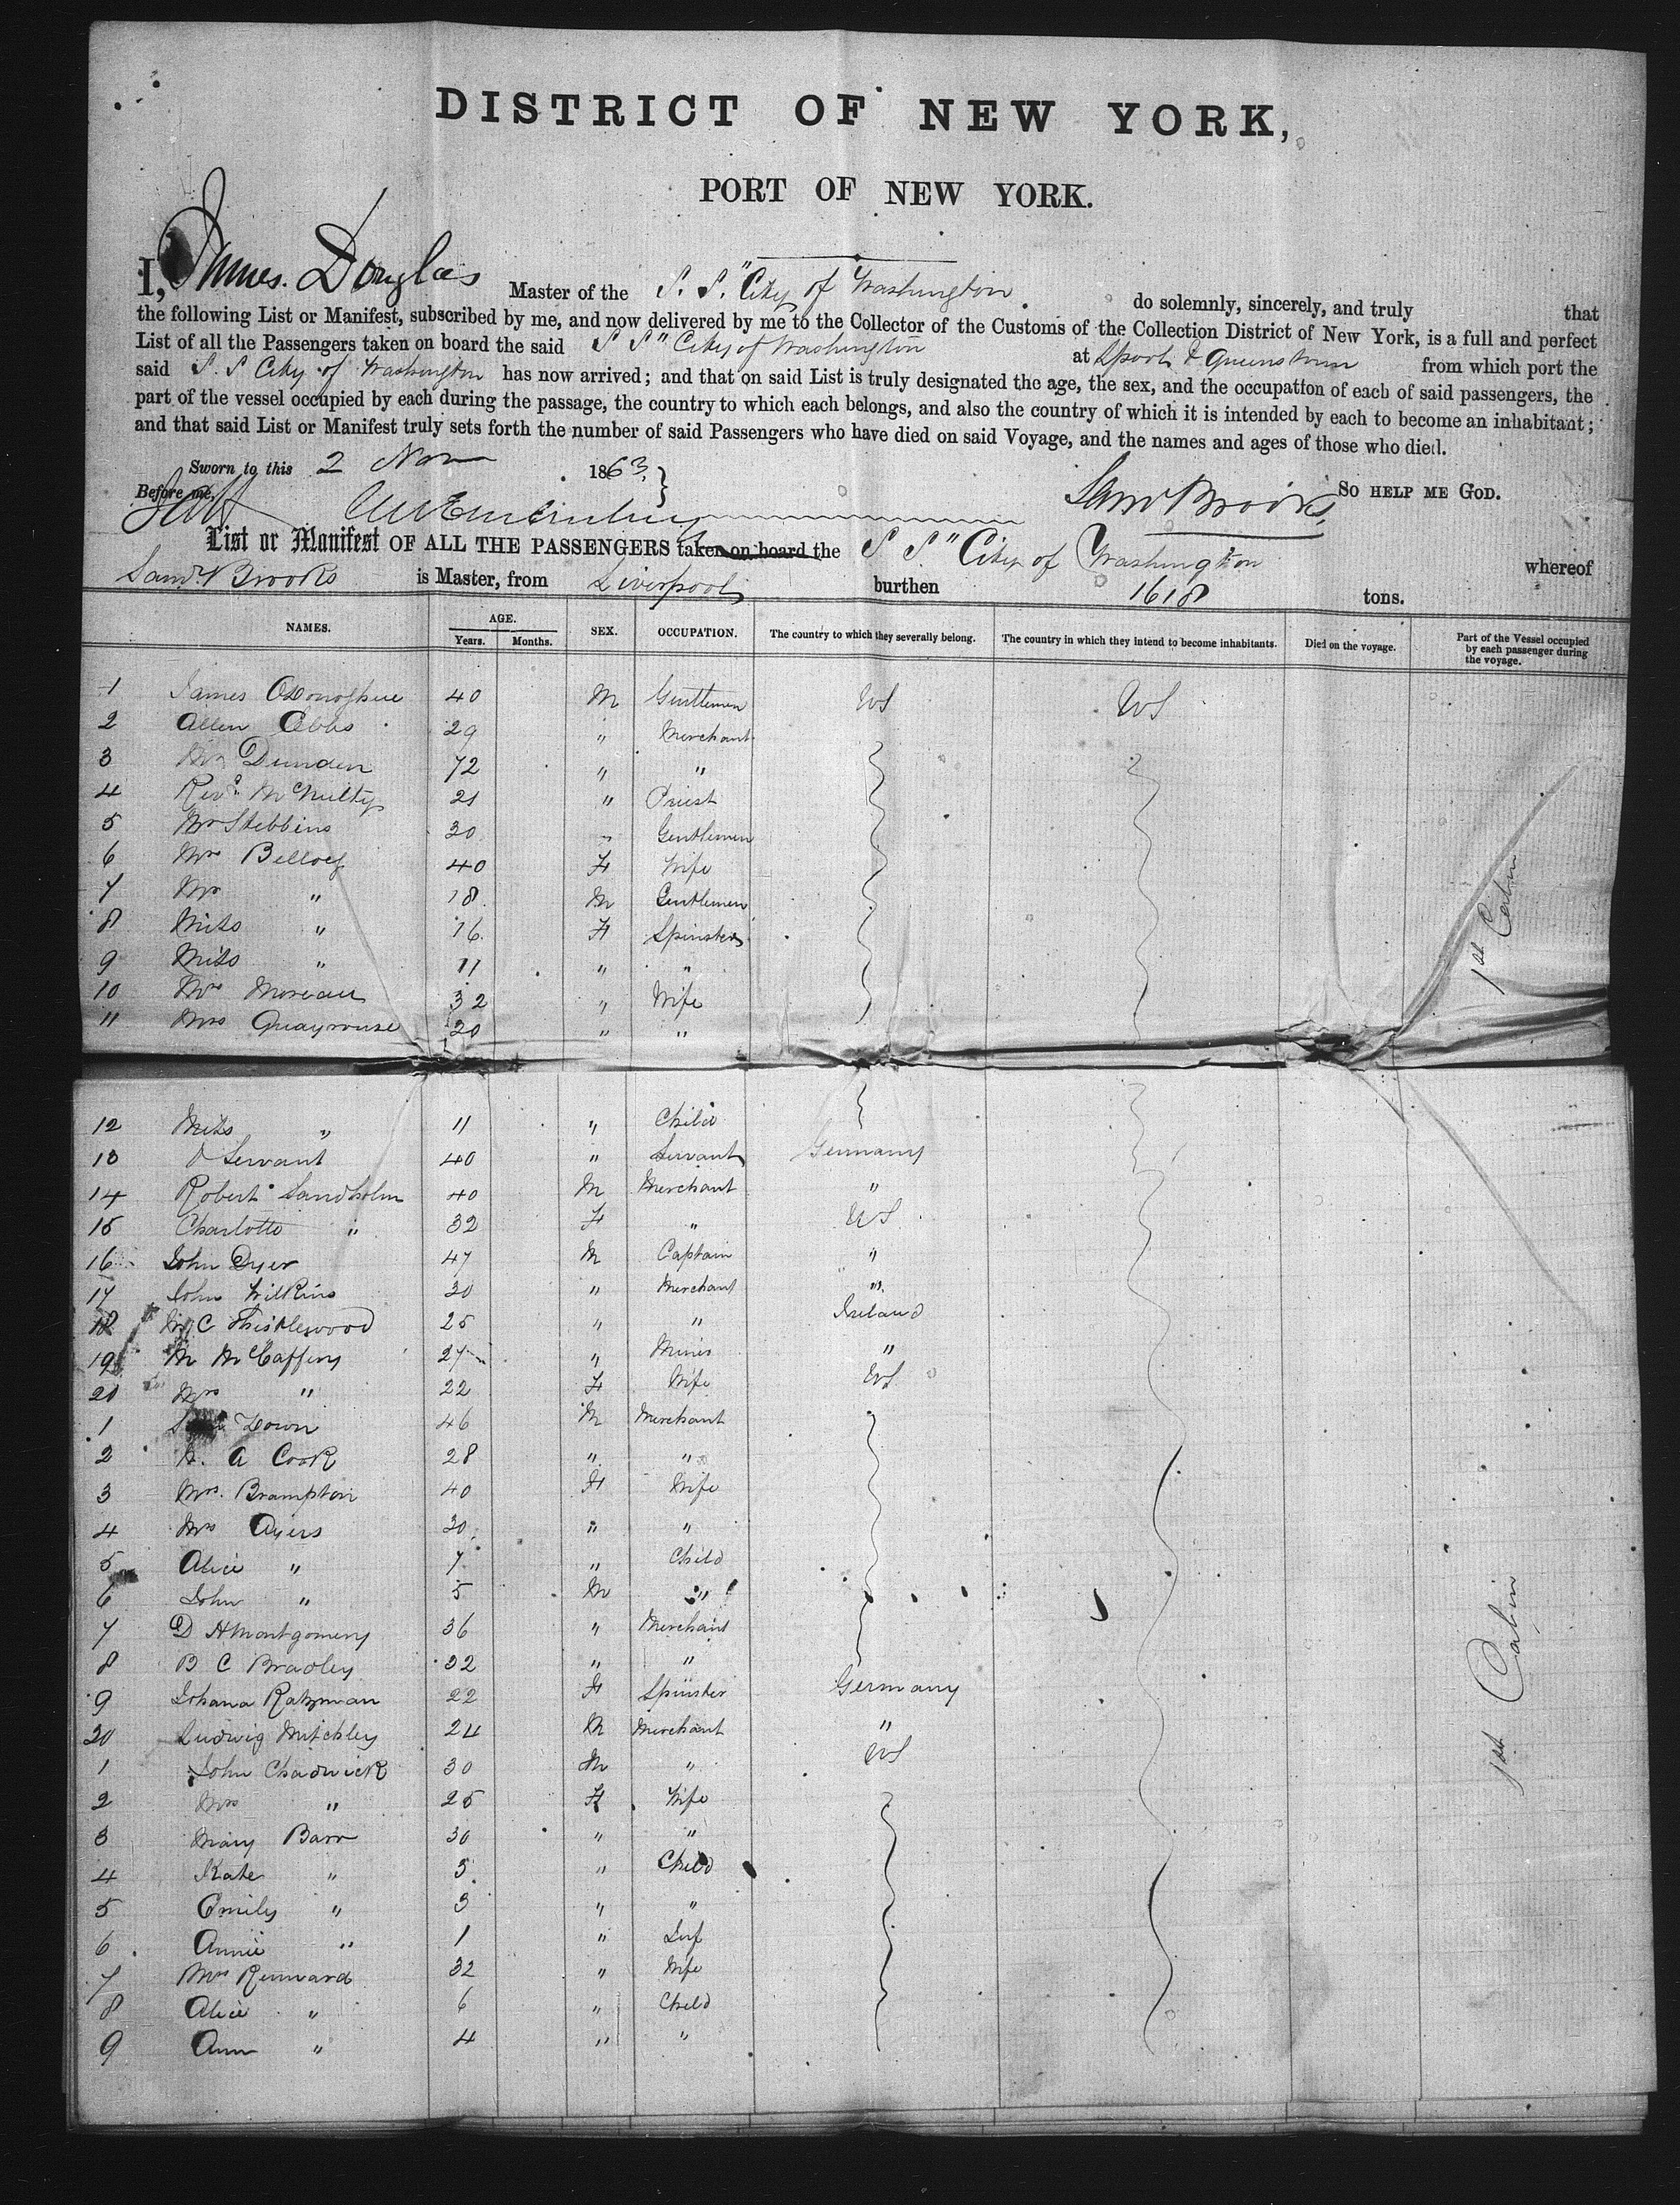 DISTRICT OF NEW YORK,
PORT OF NEW YORK.
I, James Douglas Master of the S. S. "City of Washington do solemnly, sincerely, and truly that
the following List or Manifest, subscribed by me, and now delivered by me to the Collector of the Customs of the Collection District of New York, is a full and perfect
List of all the Passengers taken on board the said S S "City of Washington at Lpool & Queenstown from which port the
said S. S City of Washington has now arrived; and that on said List is truly designated the age, the sex, and the occupation of each of said passengers, the
part of the vessel occupied by each during the passage, the country to which each belongs, and also the country of which it is intended by each to become an inhabitant;
and that said List or Manifest truly sets forth the number of said Passengers who have died on said Voyage, and the names and ages of those who died.
Sworn to this 2 Nov 1863 }
Before me, Saml Brooks SO HELP ME GOD.
List or Manifest OF ALL THE PASSENGERS taken on board the S S "City of Washington whereof
Saml Brooks is Master, from Liverpool burthen 1618 tons.
NAMES. AGE. Years. Months. SEX. OCCUPATION. The country to which they severally belong. The country in which they intend to become inhabitants. Died on the voyage. Part of the Vessel occupied by each passenger during the voyage.
1 James ODonoghue 40 M Gentlemen US US
2 Allen Abbs 29 " Merchant
3 Mr Dunden 72 " "
4 Revd McNulty 21 " Priest
5 Mr Stebbins 30 " Gentlemen
6 Mrs Belloy 40 F Wife
7 Mr " 18 M Gentlemen
8 Miss " 16 F Spinster
9 Miss " 11 " "
10 Mrs Moreau 32 " Wife
11 Mrs Quayrouse 20 " "
1st Cabin
12 Miss " 11 " Child
13 Servant 40 " Servant Germany
14 Robert Sandholm 40 M Merchant "
15 Charlotte " 32 F " US
16 John Dyer 47 M Captain "
17 John Wilkins 30 " Merchant "
18 W C Thistlewood 25 " " Ireland
19 M McCaffery 27 " Miner "
20 Mrs " 22 F Wife US
1 Down 46 M Merchant
2 H. A Cook 28 " "
3 Mrs. Brampton 40 F Wife
4 Mrs Ayers 30 " "
5 Alice " 7 " Child
6 John " 5 M "
7 D H Montgomery 36 " Merchant
8 B C Bradley 32 " "
9 Johana Ratzman 22 F Spinster Germany
30 Ludwig Mitchley 24 M Merchant "
1 John Chadwick 30 M " US
2 Mrs " 25 F Wife
3 Mary Barr 30 " "
4 Kate " 5 " Child
5 Emily " 3 " "
6 Annie " 1 " Inf
7 Mrs Runnard 32 " Wife
8 Alice " 6 " Child
9 Ann " 4 " "
1st Cabin